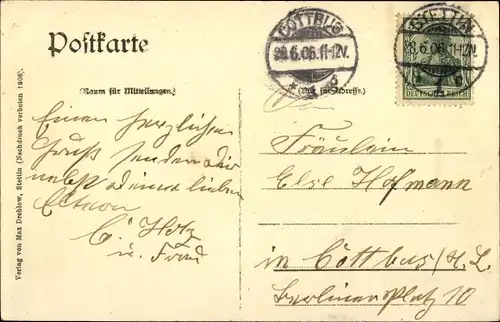 Postkarte
COTTBUS
6.06.11-12V.
STETTIN
8.6.06.11-12V.
DEUTSCHES REICH
(Raum für Mitteilungen.)
(Nur für Adresse.)
Verlag von Max Dreblow, Stettin (Nachdruck verboten 1906)
Einen herzlichen
Gruß senden dir
nebst deinen lieben
Eltern
C. Hotz
u. Frau
Fräulein
Else Hofmann
in Cottbus/N. L.
Berlinerplatz 10